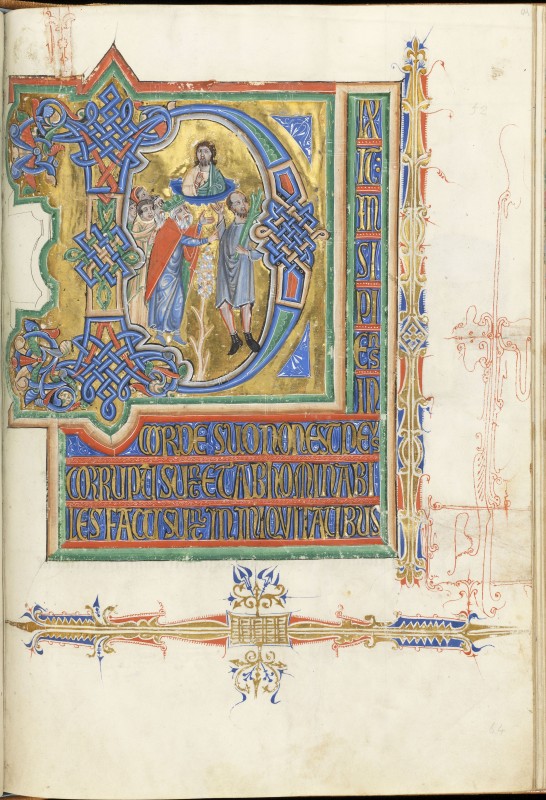 D
IX
IT
IN
SI
PI
ES
IN
CORDE SUO NON EST DEꝰ
CORRUPTI SUT ET ABHOMINABI
LES FACTI SUT IN INIQVITATIBUS